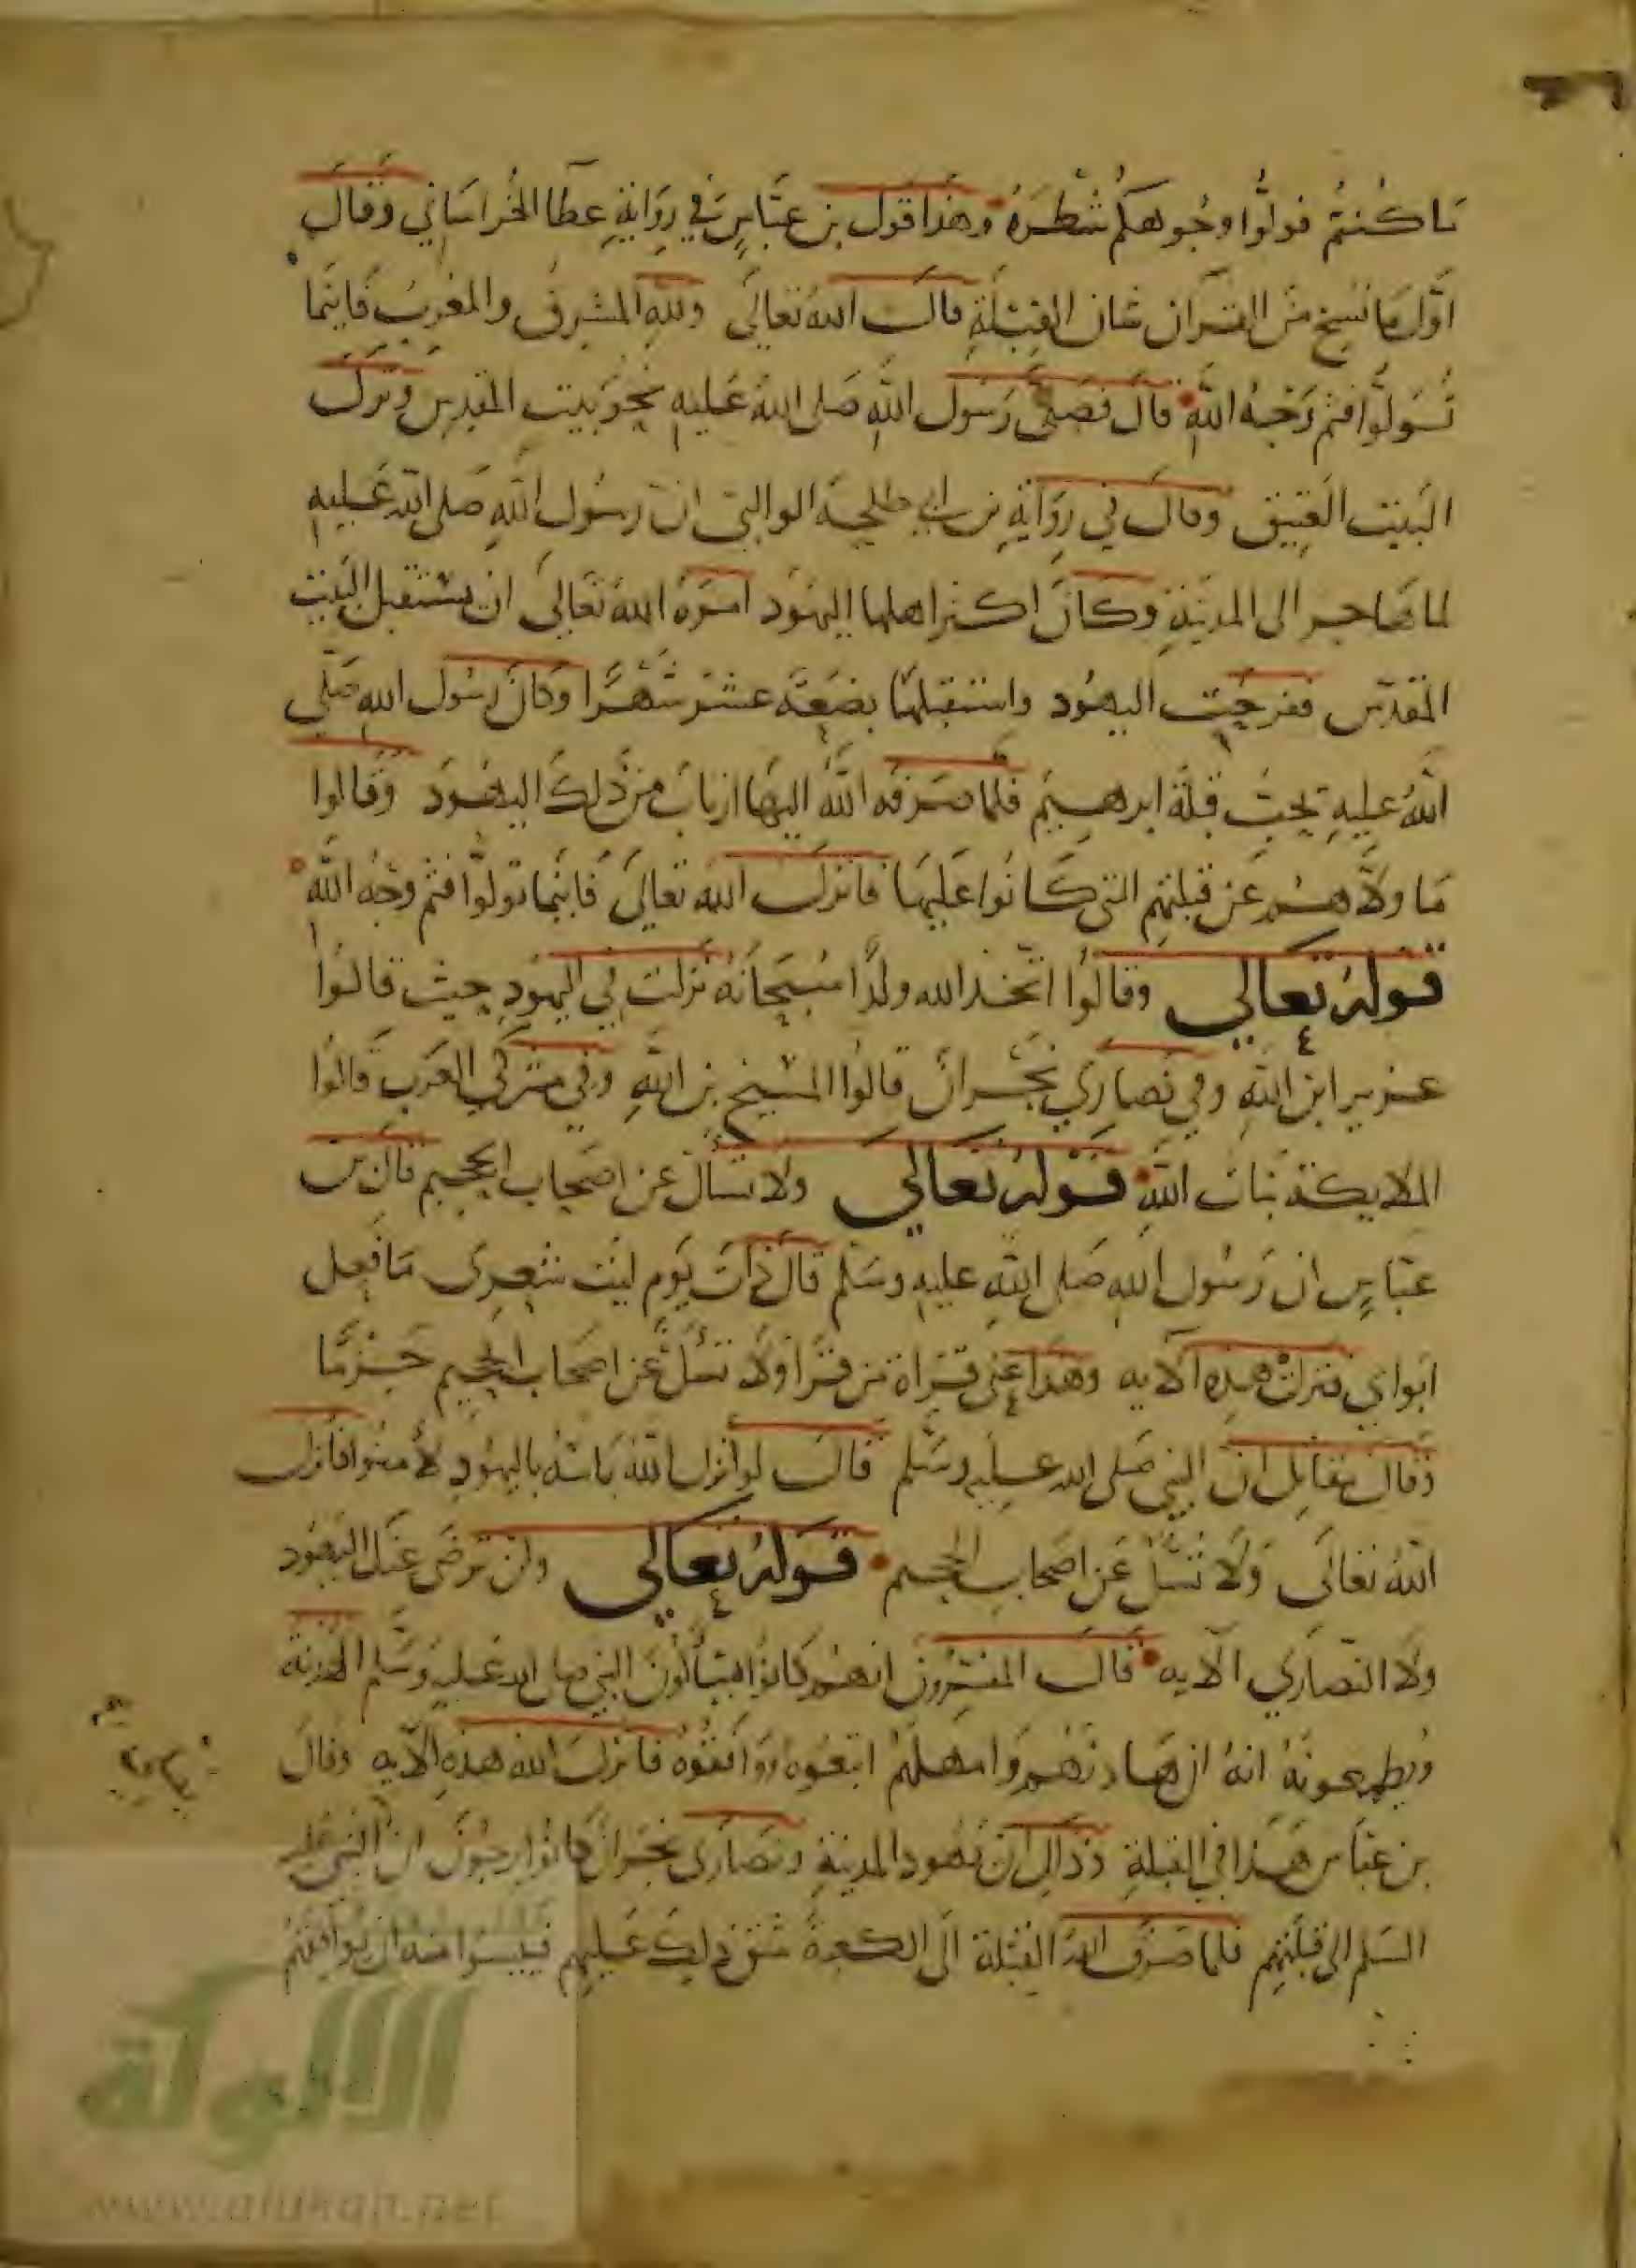 ما كنتم فولوا وجوهكم شطره وهذا قول بن عباس في رواية عطا الخراساني وقال
اول ما نسخ من القران شان القبلة قال الله تعالى ولله المشرق والمغرب فاينما
تولوا فثم وجه الله قال فصلى رسول الله صلى الله عليه نحو بيت المقدس وترك
البيت العتيق وقال في رواية بن ابي طلحة الوالبي ان رسول الله صلى الله عليه
لما هاجر الى المدينة وكان اكثر اهلها اليهود امره الله تعالى ان يستقبل البيت
المقدس ففرحت اليهود واستقبلها بضعة عشر شهرا وكان رسول الله صلى
الله عليه يحب قبلة ابرهيم فلما صرفه الله اليها ارتاب من ذلك اليهود وقالوا
ما ولاهم عن قبلتهم التي كانوا عليها فانزل الله تعالى فاينما تولوا فثم وجه الله
قوله تعالى وقالوا اتخذ الله ولدا سبحانه نزلت في اليهود حيث قالوا
عزير ابن الله وفي نصارى نجران قالوا المسيح بن الله وفي مشركي العرب قالوا
الملايكة بنات الله قوله تعالى ولا تسال عن اصحاب الجحيم قال بن
عباس ان رسول الله صلى الله عليه وسلم قال ذات يوم ليت شعري ما فعل
ابواي فنزلت هذه الايه وهذا على قراة من قرا ولا تسل عن اصحاب الجحيم جزما
وقال مقاتل ان النبي صلى الله عليه وسلم قال لو انزل الله باسه باليهود لامنوا فانزل
الله تعالى ولا تسل عن اصحاب الجحيم قوله تعالى ولن ترضى عنك اليهود
ولا النصارى الايه قال المفسرون انهم كانوا يسالون النبي صلى الله عليه وسلم الهدنة
ويطمعونه انه ان هادنهم وامهلهم اتبعوه ووافقوه فانزل الله هذه الايه وقال
بن عباس هذا في القبلة وذلك ان يهود المدينة ونصارى نجران كانوا يرجون ان النبي عليه
السلم الى قبلتهم فلما صرف الله القبلة الى الكعبة شق ذلك عليهم فييسوا منه ان يوافقهم
الألوكة
www.alukah.net